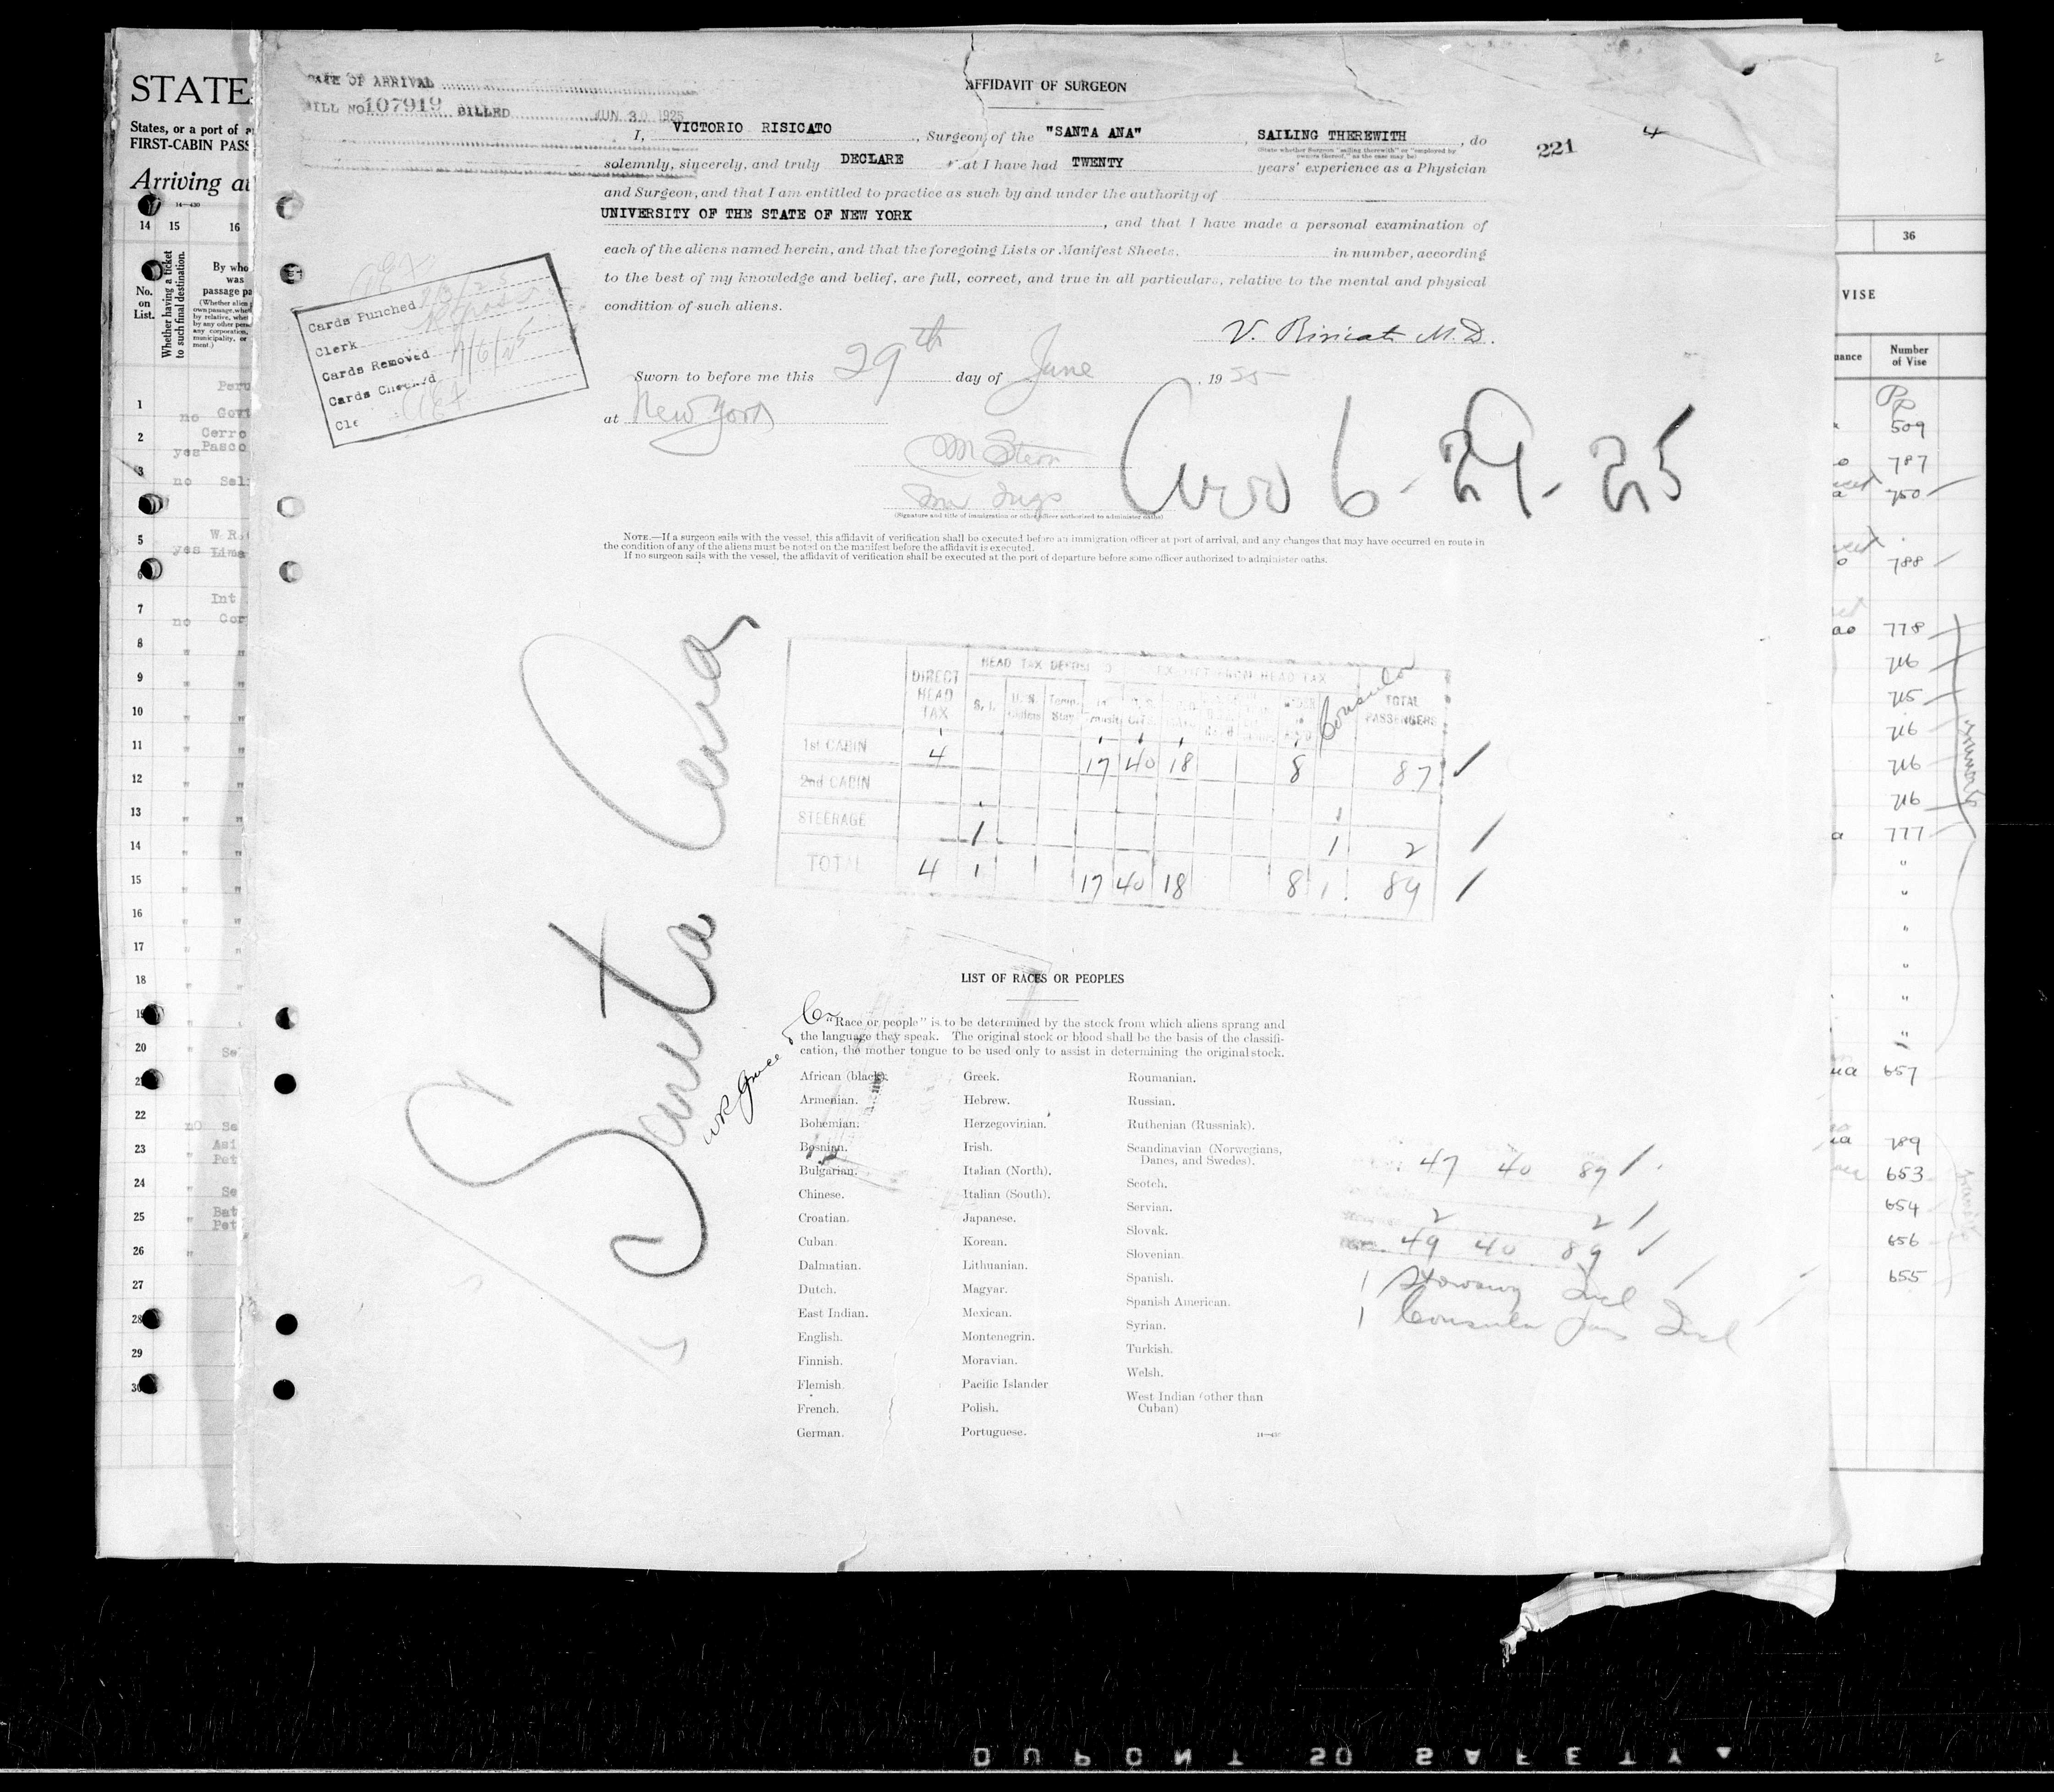 STATE
States, or a port of
FIRST-CABIN PASS
Arriving at
14—430
14 15 16
No. on List.
Whether having a ticket to such final destination.
By who
was
passage pa
DATE OF ARRIVAL
BILL No 107919 BILLED JUN 30 1925
AFFIDAVIT OF SURGEON
I, VICTORIO RISICATO, Surgeon of the "SANTA ANA", SAILING THEREWITH, do
(State whether Surgeon "sailing therewith" or "employed by
owners thereof," as the case may be)
221
4
solemnly, sincerely, and truly DECLARE at I have had TWENTY years' experience as a Physician
and Surgeon, and that I am entitled to practice as such by and under the authority of
UNIVERSITY OF THE STATE OF NEW YORK, and that I have made a personal examination of
each of the aliens named herein, and that the foregoing Lists or Manifest Sheets, in number, according
to the best of my knowledge and belief, are full, correct, and true in all particulars, relative to the mental and physical
condition of such aliens.
Cards Punched
Clerk
Cards Removed 7/6/25
Cards Checked
Cle
V. Risicato M.D.
Sworn to before me this 29th day of June, 19 25
at New York
M Stern
Imm Insp
(Signature and title of immigration or other officer authorized to administer oaths)
Arr 6-29-25
NOTE.—If a surgeon sails with the vessel, this affidavit of verification shall be executed before an immigration officer at port of arrival, and any changes that may have occurred en route in
the condition of any of the aliens must be noted on the manifest before the affidavit is executed.
If no surgeon sails with the vessel, the affidavit of verification shall be executed at the port of departure before some officer authorized to administer oaths.
Santa Ana
W R Grace & Co
DIRECT HEAD TAX
HEAD TAX DEPOS
HEAD TAX
S. I.
Temp. Stay
Consular
TOTAL PASSENGERS
1st CABIN 4 17 40 18 8 87
2nd CABIN
STEERAGE 1 1 2
TOTAL 4 1 17 40 18 8 1 89
LIST OF RACES OR PEOPLES
"Race or people" is to be determined by the stock from which aliens sprang and
the language they speak. The original stock or blood shall be the basis of the classifi-
cation, the mother tongue to be used only to assist in determining the original stock.
African (black).
Armenian.
Bohemian.
Bosnian.
Bulgarian.
Chinese.
Croatian.
Cuban.
Dalmatian.
Dutch.
East Indian.
English.
Finnish.
Flemish.
French.
German.
Greek.
Hebrew.
Herzegovinian.
Irish.
Italian (North).
Italian (South).
Japanese.
Korean.
Lithuanian.
Magyar.
Mexican.
Montenegrin.
Moravian.
Pacific Islander
Polish.
Portuguese.
Roumanian.
Russian.
Ruthenian (Russniak).
Scandinavian (Norwegians,
Danes, and Swedes).
Scotch.
Servian.
Slovak.
Slovenian.
Spanish.
Spanish American.
Syrian.
Turkish.
Welsh.
West Indian (other than
Cuban)
14—430
47 40 87
2 2
49 40 89
1 Stowaway Incl
1 Consular Pass Incl
1 no Govt
2 yes Cerro Pasco
3 no Sel
5 yes W. R. Lima
6
7 no Int Cor
8 "
9 "
10 "
11 "
12 "
13 "
14 "
15 "
16 "
17 "
18 "
19
20 " Se
21
22 no Se
23 " Asi Pet
24 " Se
25 " Bat Pet
26 "
27
28
29
30
2
36
VISE
uance
Number
of Vise
PP
509
787
750
788
778
716
715
716
716
716
777
"
"
"
"
"
"
657
789
653
654
656
655
DUPONT SO SAFETY